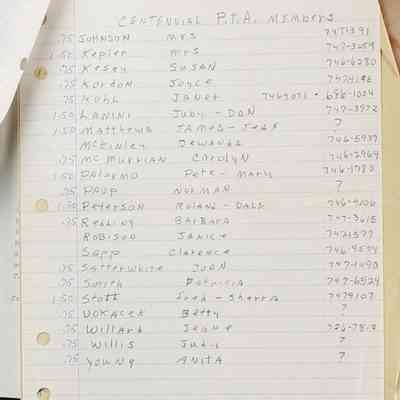 CENTENNIAL P.T.A. MEMBERS
.75 JOHNSON MRS 7471391
1.50 Kepler MRS 747-3259
.75 Kesey SUSAN 746-6280
.75 Kordon Joyce
.75 Kohl Janet 7469071 • 686-1024
1.50 LANINI Judy - DON 747-3972
1.50 Matthews JAMES - Jess ?
McKinley Dewanda 746-5937
.75 McMurrian Carolyn 746-2964
1.50 Palermo Pete - Mary 746-1783
.75 PAUP NORMAN ?
1.50 Peterson Roland - Dale 746-9106
.75 Redding BARBARA 747-3615
ROBISON Janice 7471577
Sapp Clarence 746-9574
.75 Satterwhite JOAN 747-1490
.75 Smith Patricia 747-6524
1.50 Stott Fred - Sherra 7479107
.75 VOKACEK Betty ?
.75 Willard Jeane 726-7812
.75 Willis Judi ?
.75 YOUNG ANITA ?